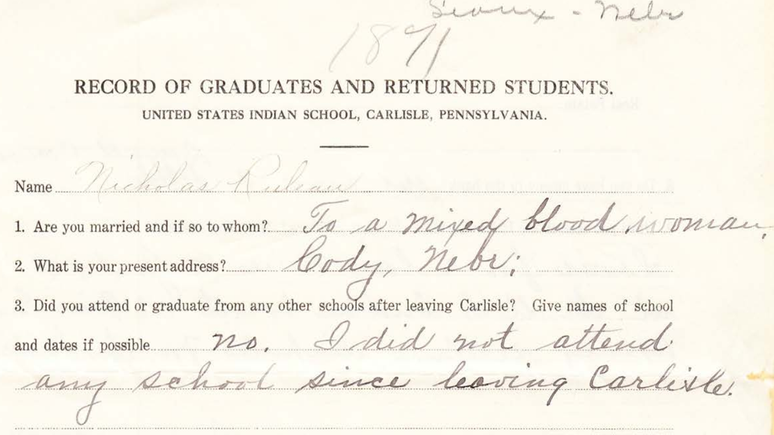 Sioux - Nebr
1891
RECORD OF GRADUATES AND RETURNED STUDENTS.
UNITED STATES INDIAN SCHOOL, CARLISLE, PENNSYLVANIA.
Name Nicholas Ruleau
1. Are you married and if so to whom? To a mixed blood woman.
2. What is your present address? Cody, Nebr;
3. Did you attend or graduate from any other schools after leaving Carlisle? Give names of school
and dates if possible no. I did not attend
any school since leaving Carlisle.